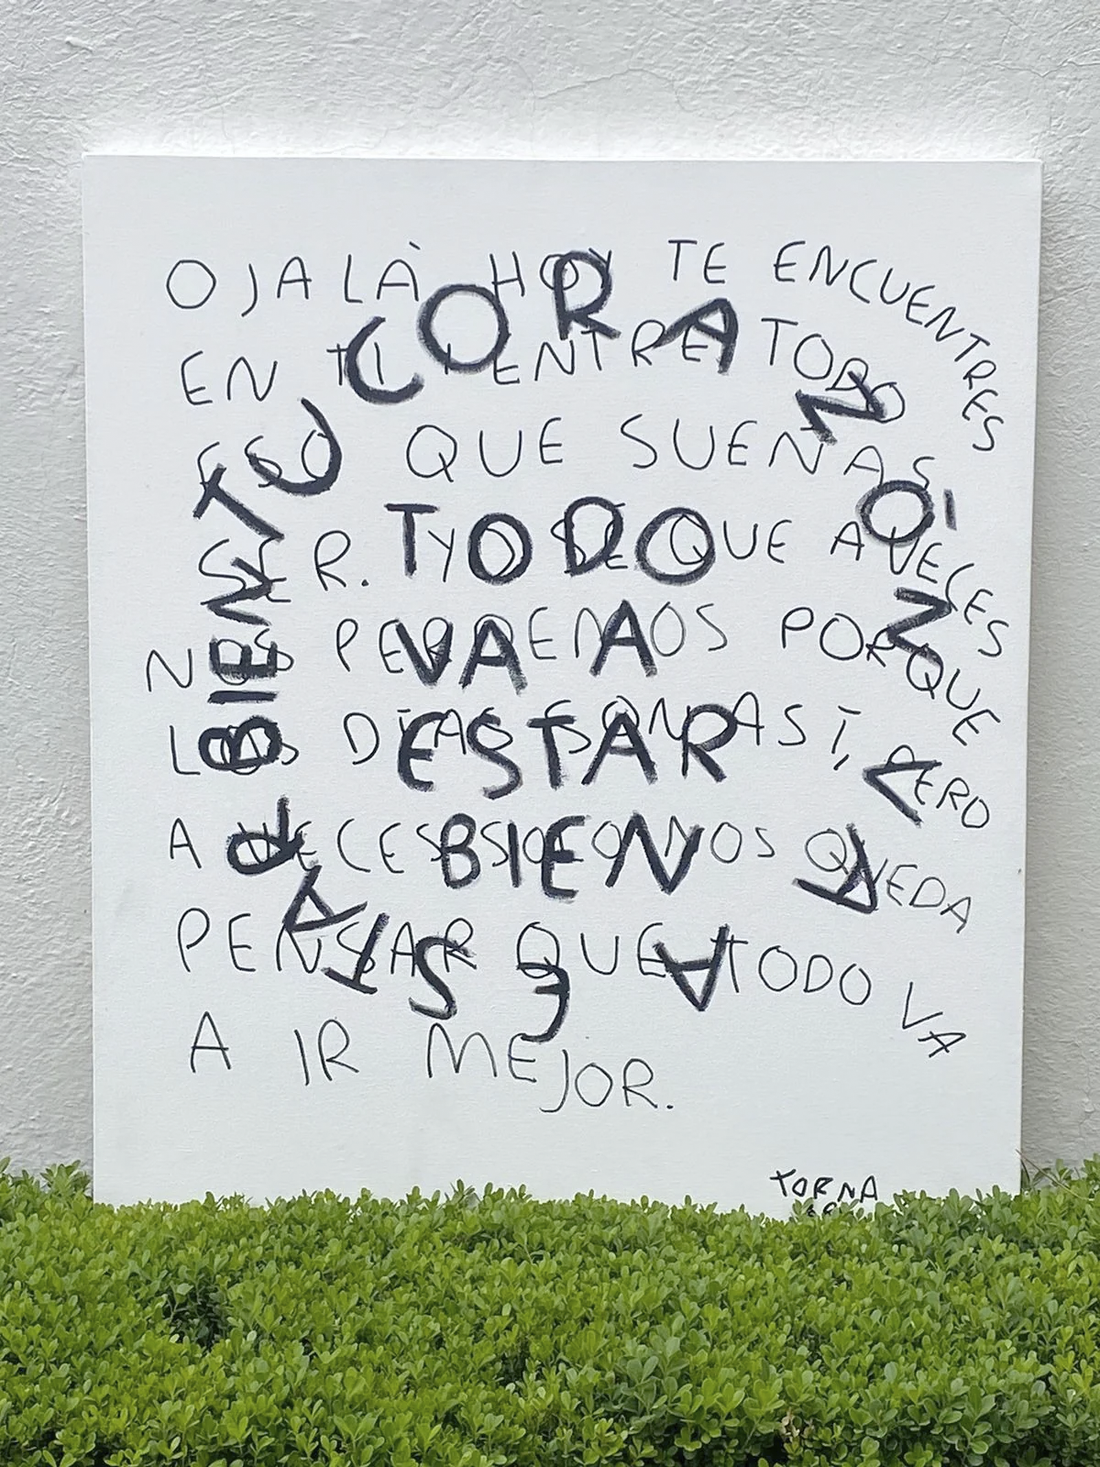 OJALÀ HOY TE ENCUENTRES
EN TI ENTRE TODO
ESO QUE SUENAS
SER. YO SE QUE A VECES
NOS PERDEMOS PORQUE
LOS DÍAS SON ASÍ, PERO
A VECES SOLO NOS QUEDA
PENSAR QUE TODO VA
A IR MEJOR.
TU CORAZÓN VA A ESTAR BIEN
TODO
VA A
ESTAR
BIEN
TORNA